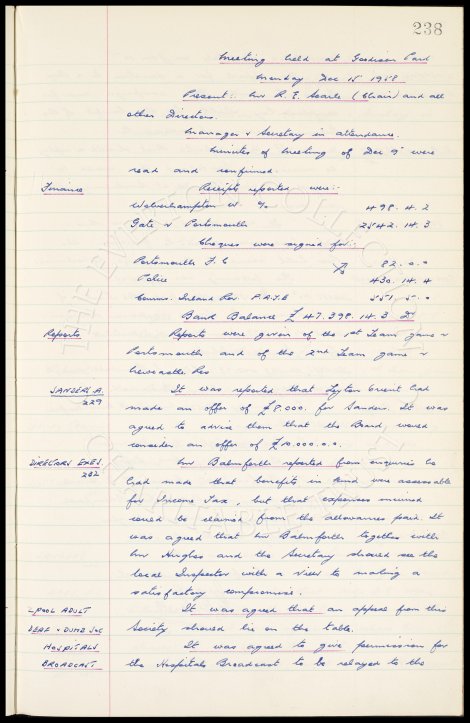 238
Meeting held at Goodison Park
Monday Dec 15 1958
Present:- Mr R. E. Searle (Chair) and all
other Directors.
Manager & Secretary in attendance.
Minutes of Meeting of Dec 9th were
read and confirmed.
Finance
Receipts reported were:-
Wolverhampton W. % 498. 4. 2
Gate v Portsmouth 2542. 14. 3
Cheques were signed for:-
Portsmouth F. C 82. 0. 0
Police 430. 14. 4
Comms. Inland Rev. P.A.Y.E 551. 5. 0
Bank Balance £47,398. 14. 3
Reports
Reports were given of the 1st Team game v
Portsmouth and of the 2nd Team game v
Newcastle Res
SANDERS A.
229
It was reported that Leyton Orient had
made an offer of £8,000. for Sanders. It was
agreed to advise them that the Board would
consider an offer of £10,000. 0. 0.
DIRECTORS EXES.
202
Mr Balmforth reported from enquiries he
had made that benefits in kind were assessable
for Income Tax, but that expenses incurred
could be claimed from the allowances paid. It
was agreed that Mr Balmforth together with
Mr Hughes and the Secretary should see the
local Inspector with a view to making a
satisfactory compromise.
L'POOL ADULT
DEAF & DUMB SOC
It was agreed that an appeal from this
Society should lie on the table.
HOSPITALS
BROADCAST
It was agreed to give permission for
the Hospitals Broadcast to be relayed to the
THE EVERTON COLLECTION
CHARITABLE TRUST